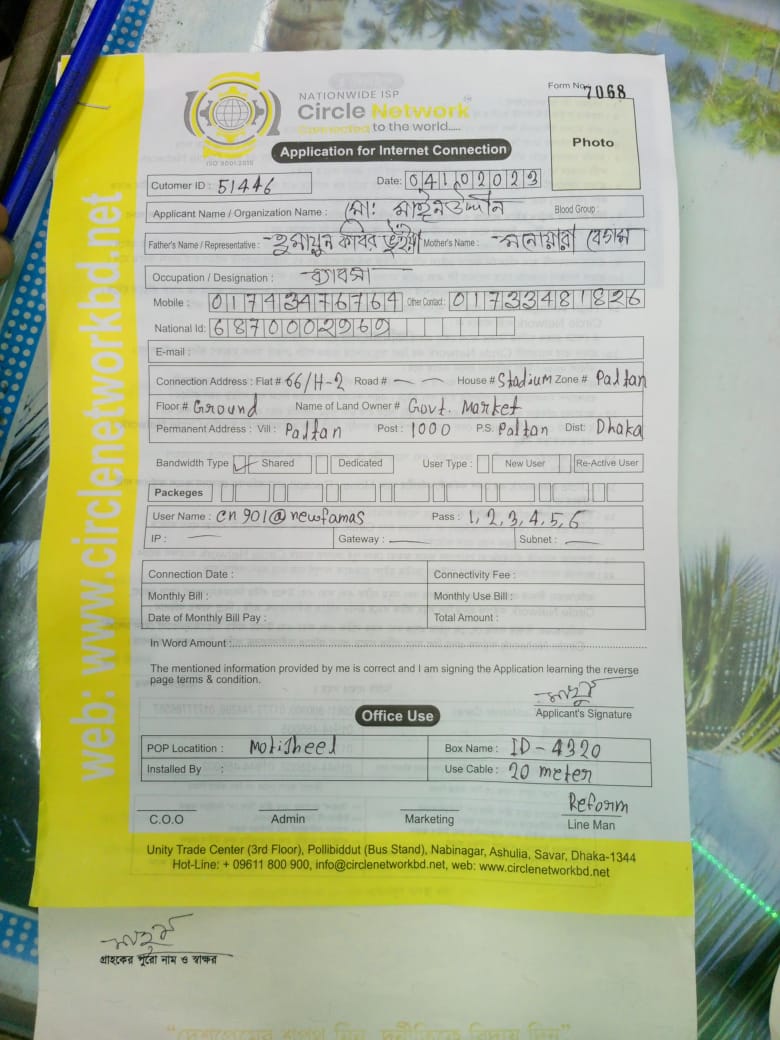 NATIONWIDE ISP
Circle Network
Connected to the world....
ISO 9001:2015
Form No. 7068
Photo
Application for Internet Connection
Cutomer ID : 51446 Date: 04102023
Applicant Name / Organization Name : মো: মাইনউদ্দীন Blood Group :
Father's Name / Representative : হুমায়ুন কবির ভূঁইয়া Mother's Name : মনোয়ারা বেগম
Occupation / Designation : ব্যাবসা
Mobile : 01743476764 Other Contact : 01733481826
National Id: 6870002969
E-mail :
Connection Address : Flat # 66/H-2 Road # — — House # Stadium Zone # Paltan
Floor # Ground Name of Land Owner # Govt. Market
Permanent Address : Vill : Paltan Post : 1000 P.S. Paltan Dist: Dhaka
Bandwidth Type ✓ Shared Dedicated User Type : New User Re-Active User
Packeges
User Name : cn901@newfamas Pass : 1,2,3,4,5,6
IP : — Gateway : — Subnet : —
Connection Date : Connectivity Fee :
Monthly Bill : Monthly Use Bill :
Date of Monthly Bill Pay : Total Amount :
In Word Amount :
The mentioned information provided by me is correct and I am signing the Application learning the reverse
page terms & condition.
Applicant's Signature
Office Use
POP Locatition : Motijheel Box Name : ID-4320
Installed By : Use Cable : 20 meter
Reform
C.O.O Admin Marketing Line Man
Unity Trade Center (3rd Floor), Pollibiddut (Bus Stand), Nabinagar, Ashulia, Savar, Dhaka-1344
Hot-Line: + 09611 800 900, info@circlenetworkbd.net, web: www.circlenetworkbd.net
web: www.circlenetworkbd.net
গ্রাহকের পুরো নাম ও স্বাক্ষর
“দেশপ্রেমের শপথ নিন, দুর্নীতিকে বিদায় দিন”